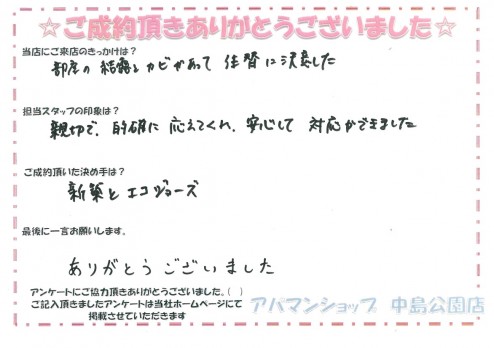 ☆ご成約頂きありがとうございました☆
当店にご来店のきっかけは?
部屋の結露とカビがあって住替に決意した
担当スタッフの印象は?
親切で、的確に応えてくれ、安心して対応ができました
ご成約頂いた決め手は?
新築とエコジョーズ
最後に一言お願いします。
ありがとうございました
アンケートにご協力頂きありがとうございました。( )
ご記入頂きましたアンケートは当社ホームページにて
掲載させていただきます
アパマンショップ 中島公園店